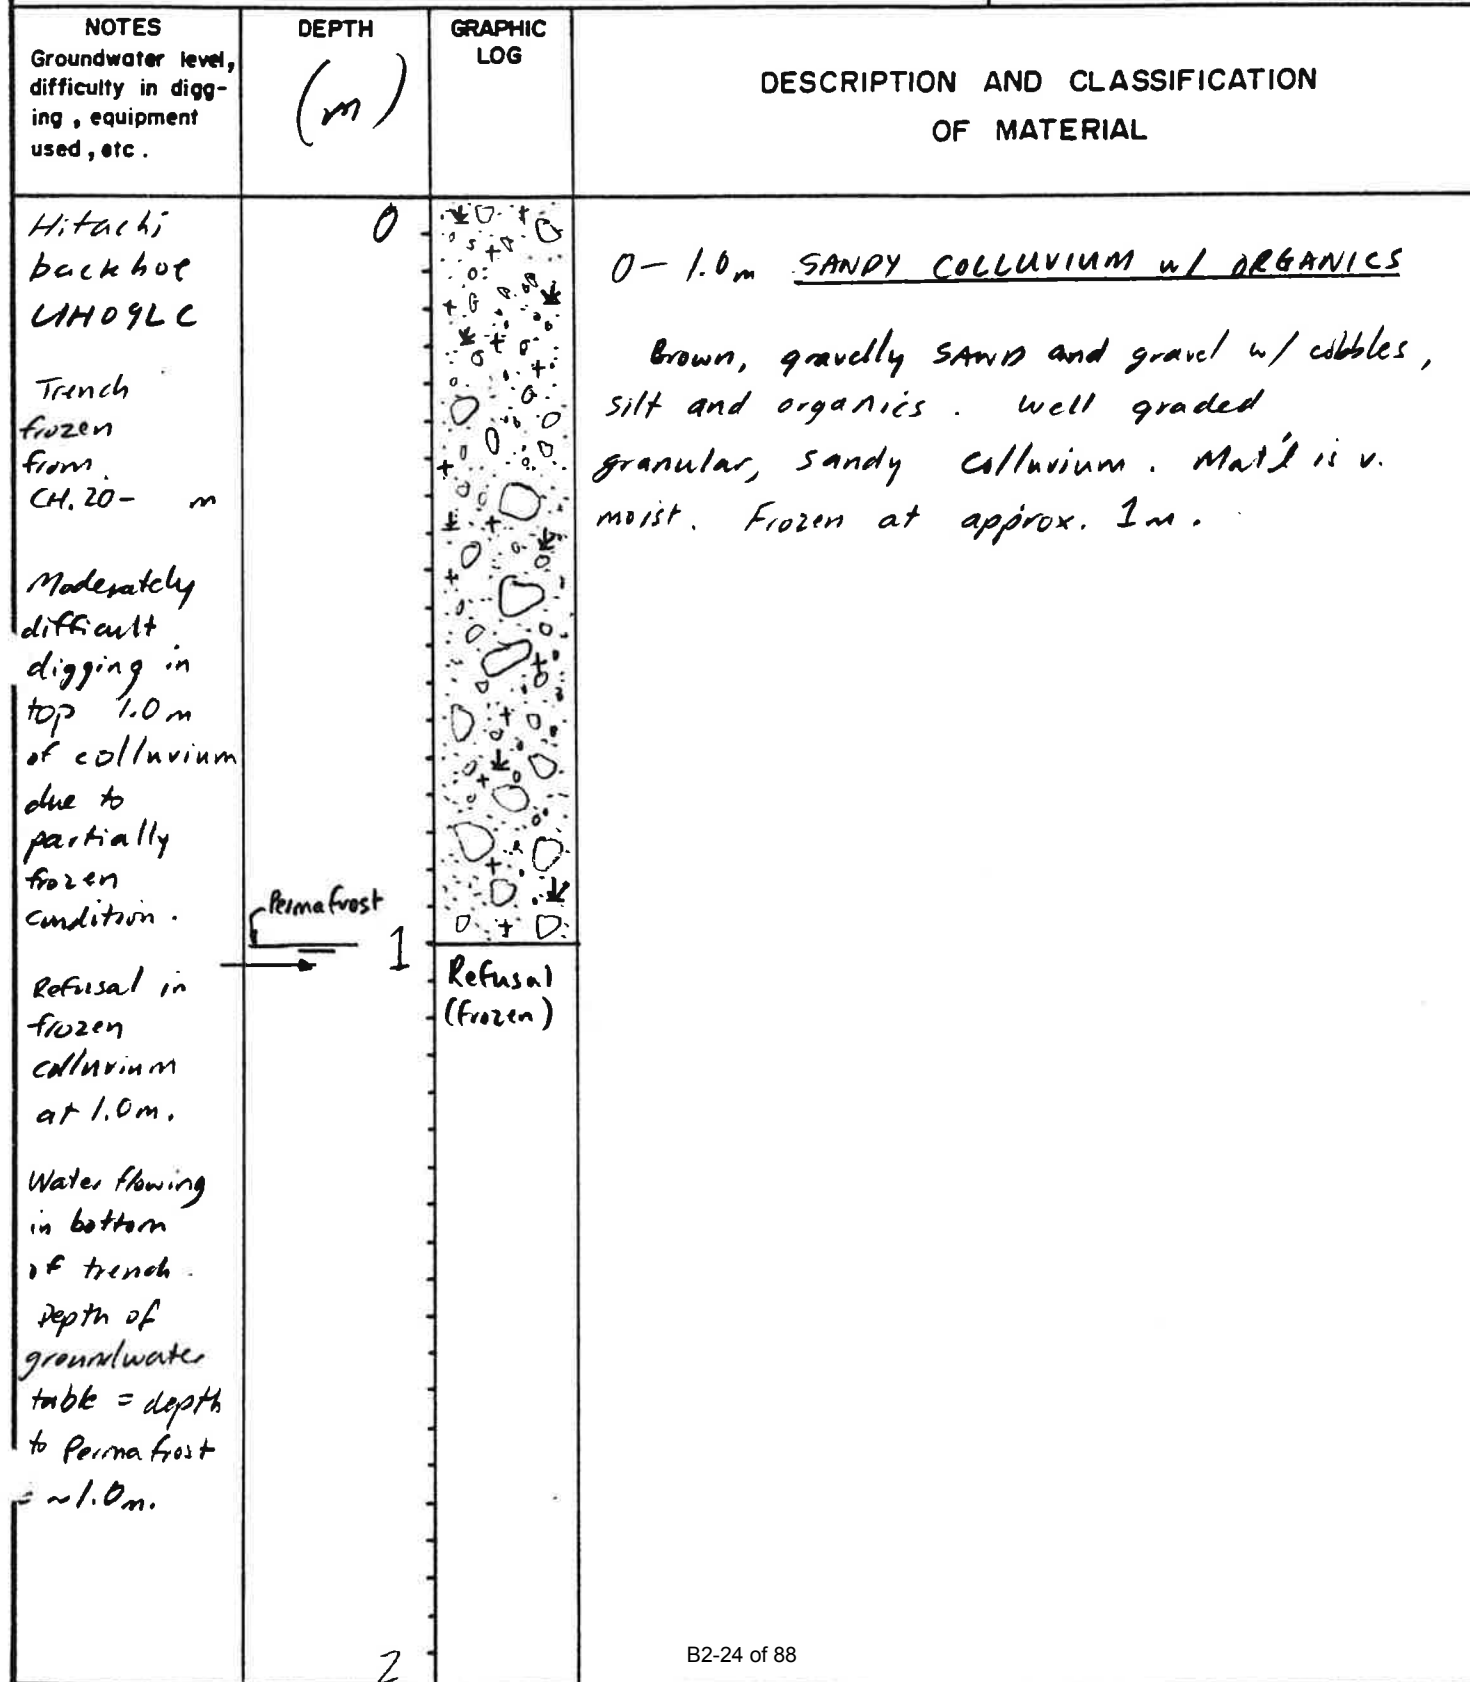 NOTES
Groundwater level,
difficulty in digg-
ing, equipment
used, etc.
DEPTH
(m)
GRAPHIC
LOG
DESCRIPTION AND CLASSIFICATION
OF MATERIAL
Hitachi
backhoe
UH09LC
Trench
frozen
from
CH. 20-   m
Moderately
difficult
digging in
top 1.0m
of colluvium
due to
partially
frozen
condition.
Refusal in
frozen
colluvium
at 1.0m.
Water flowing
in bottom
of trench.
Depth of
groundwater
table = depth
to Permafrost
= ~1.0m.
0
Permafrost
1
2
Refusal
(frozen)
0 - 1.0m SANDY COLLUVIUM w/ ORGANICS
Brown, gravelly SAND and gravel w/ cobbles,
silt and organics. Well graded
granular, sandy colluvium. Mat'l is v.
moist. Frozen at approx. 1m.
B2-24 of 88